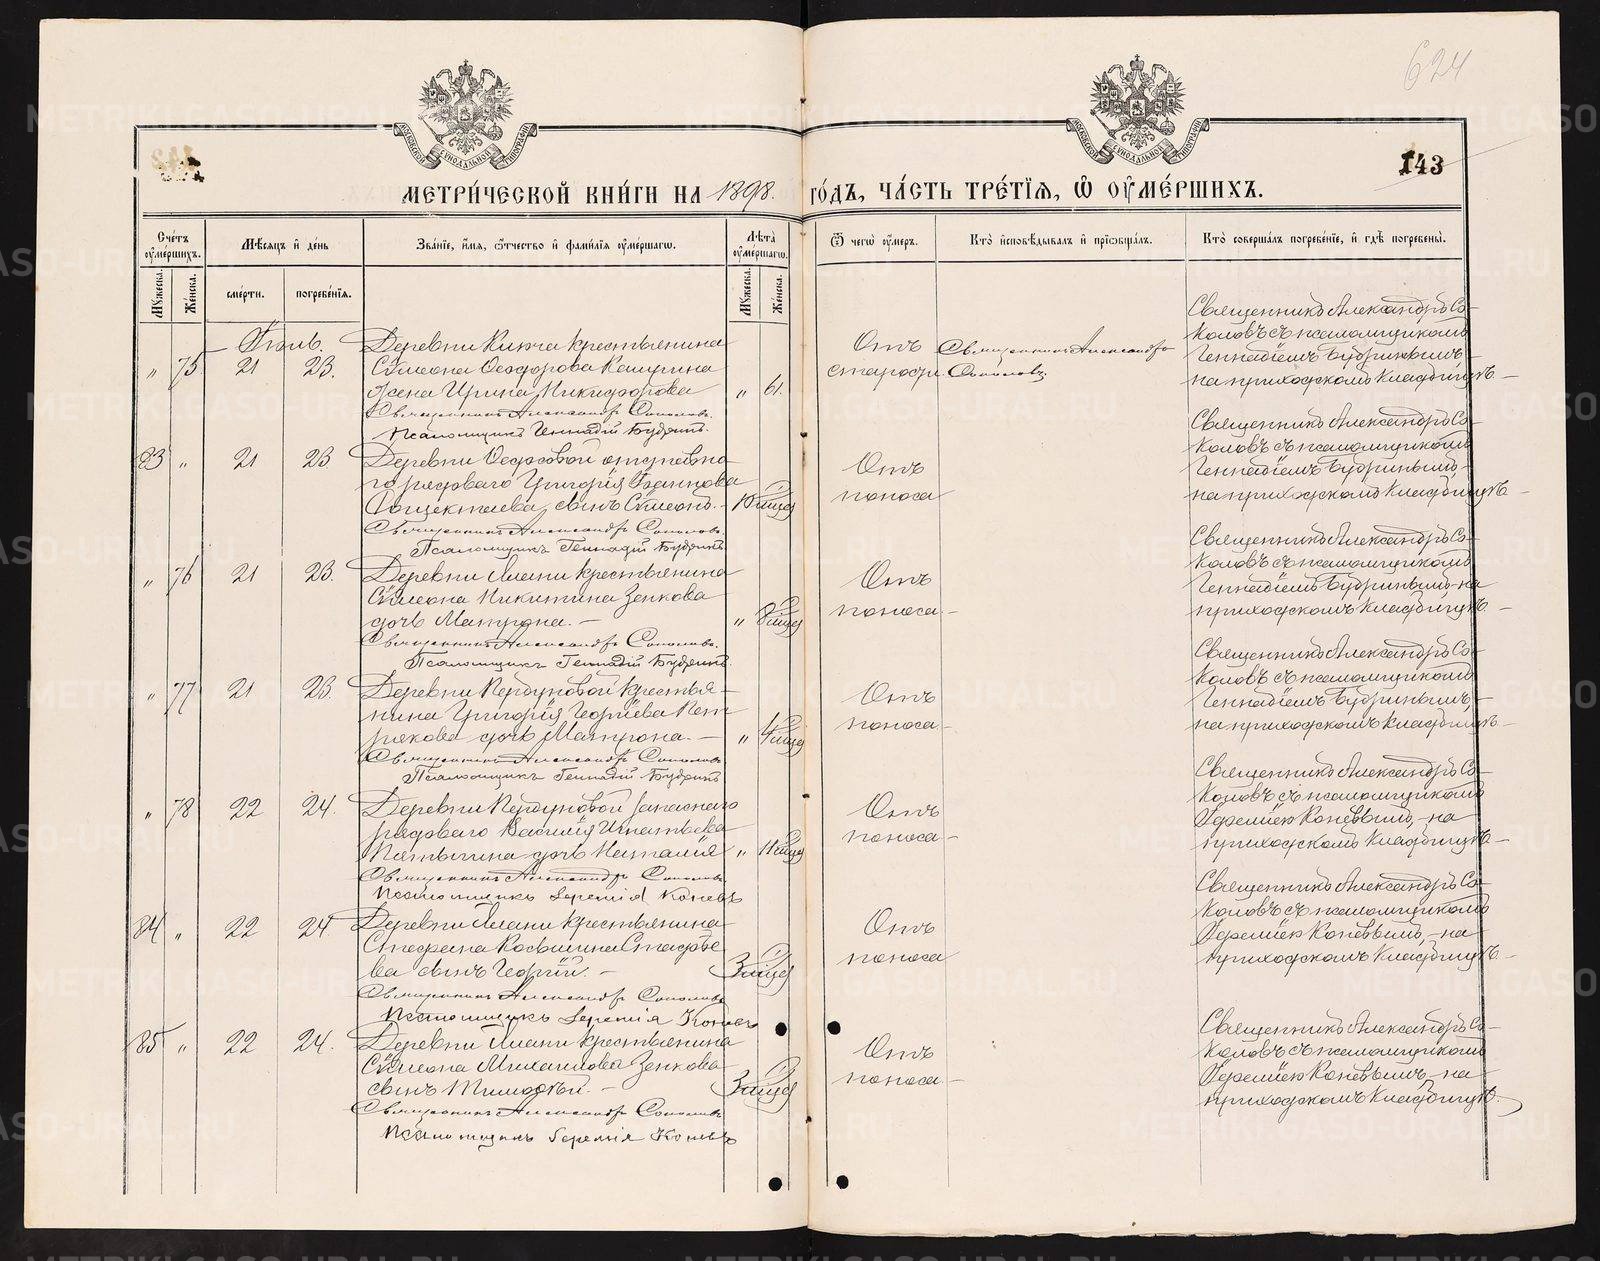 624
143
МЕТРИ́ЧЕСКОЙ КНИ́ГИ НА 1898. ГО́ДЪ, ЧА́СТЬ ТРЕ́ТЇѦ, Ѡ҆ ОУ҆МЕ́РШИХЪ.
Сче́тъ оу҆ме́ршихъ.
Мꙋ́жеска. Же́нска.
Мѣ́сѧцъ и҆ де́нь
сме́рти. погребе́нїѧ.
Зва́нїе, и҆́мѧ, ѻ҆́тчество и҆ фами́лїѧ оу҆ме́ршагѡ.
Лѣ́та оу҆ме́ршагѡ.
Мꙋ́жеска. Же́нска.
Ѿ чегѡ̀ оу҆́меръ.
Кто̀ и҆сповѣ́дывалъ и҆ прїѡбща́лъ.
Кто̀ соверша́лъ погребе́нїе, и҆ гдѣ̀ погребены̀.
Іюль.
" 75 21 23.
Деревни Кипча крестьянина
Сѵмеона Ѳеодорова Кашурина
жена Ирина Никифорова " 61.
Священникъ Александръ Соколовъ.
Псаломщикъ Геннадій Будринъ.
Отъ
старости.
Священникъ Александръ
Соколовъ.
Священникъ Александръ Со-
коловъ съ псаломщикомъ
Геннадіемъ Будринымъ -
на приходскомъ кладбищѣ. -
83 " 21 23
Григорія
сынъ Сѵмеонъ. -
Священникъ Александръ Соколовъ.
Псаломщикъ Геннадій Будринъ
Отъ
поноса
Священникъ Александръ Со-
коловъ съ псаломщикомъ
Геннадіемъ Будринымъ -
на приходскомъ кладбищѣ -
" 76 21 23.
Деревни крестьянина
Сѵмеона Никитина Зенкова
дочь Матрона. - "
Священникъ Александръ Соколовъ.
Псаломщикъ Геннадій Будринъ.
Отъ
поноса. -
Священникъ Александръ Со-
коловъ съ псаломщикомъ
Геннадіемъ Будринымъ, на
приходскомъ кладбищѣ. -
" 77 21 23.
Деревни крестья-
нина Григорія Георгіева
дочь Матрона. - "
Священникъ Александръ Соколовъ
Псаломщикъ Геннадій Будринъ
Отъ
поноса. -
Священникъ Александръ Со-
коловъ съ псаломщикомъ
Геннадіемъ Будринымъ, -
на приходскомъ кладбищѣ -
" 78 22 24.
Деревни запаснаго
рядоваго Василія Игнатьева
дочь Наталія "
Священникъ Александръ Соколовъ
Псаломщикъ Іеремія Коневъ
Отъ
поноса. -
Священникъ Александръ Со-
коловъ съ псаломщикомъ
Іереміею Коневымъ, - на
приходскомъ кладбищѣ. -
84 " 22 24
Деревни крестьянина
Стефана Косьмина
сынъ Георгій. -
Священникъ Александръ Соколовъ
Псаломщикъ Іеремія Коневъ
Отъ
поноса
Священникъ Александръ Со-
коловъ съ псаломщикомъ
Іереміею Коневымъ, - на
приходскомъ кладбищѣ. -
85 " 22 24.
Деревни крестьянина
Сѵмеона Михаилова Зенкова
сынъ Тимоѳей. -
Священникъ Александръ Соколовъ
Псаломщикъ Іеремія Коневъ
Отъ
поноса. -
Священникъ Александръ Со-
коловъ съ псаломщикомъ
Іереміею Коневымъ, - на
приходскомъ кладбищѣ.
METRIKI.GASO-URAL.RU